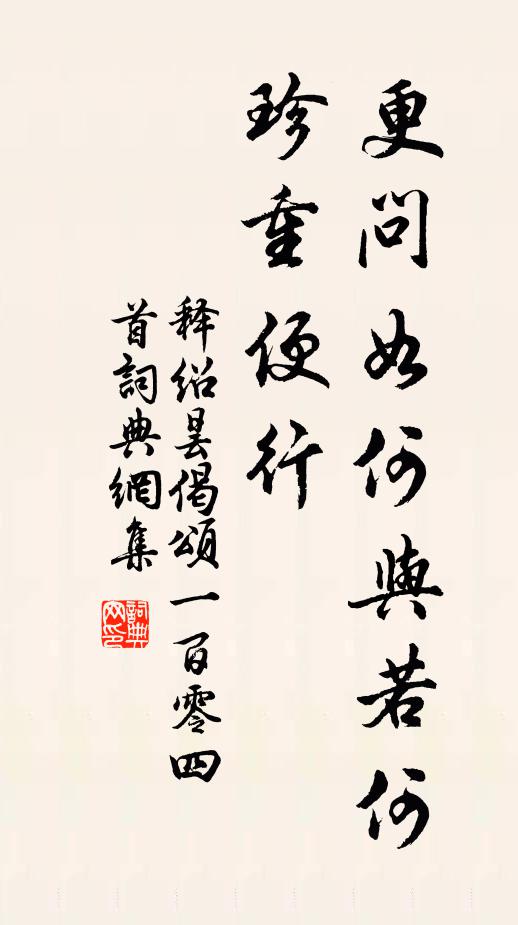 更問如何與若何
珍重便行
释绍昙偈頌一百零四
首詞典網集
詞典网印